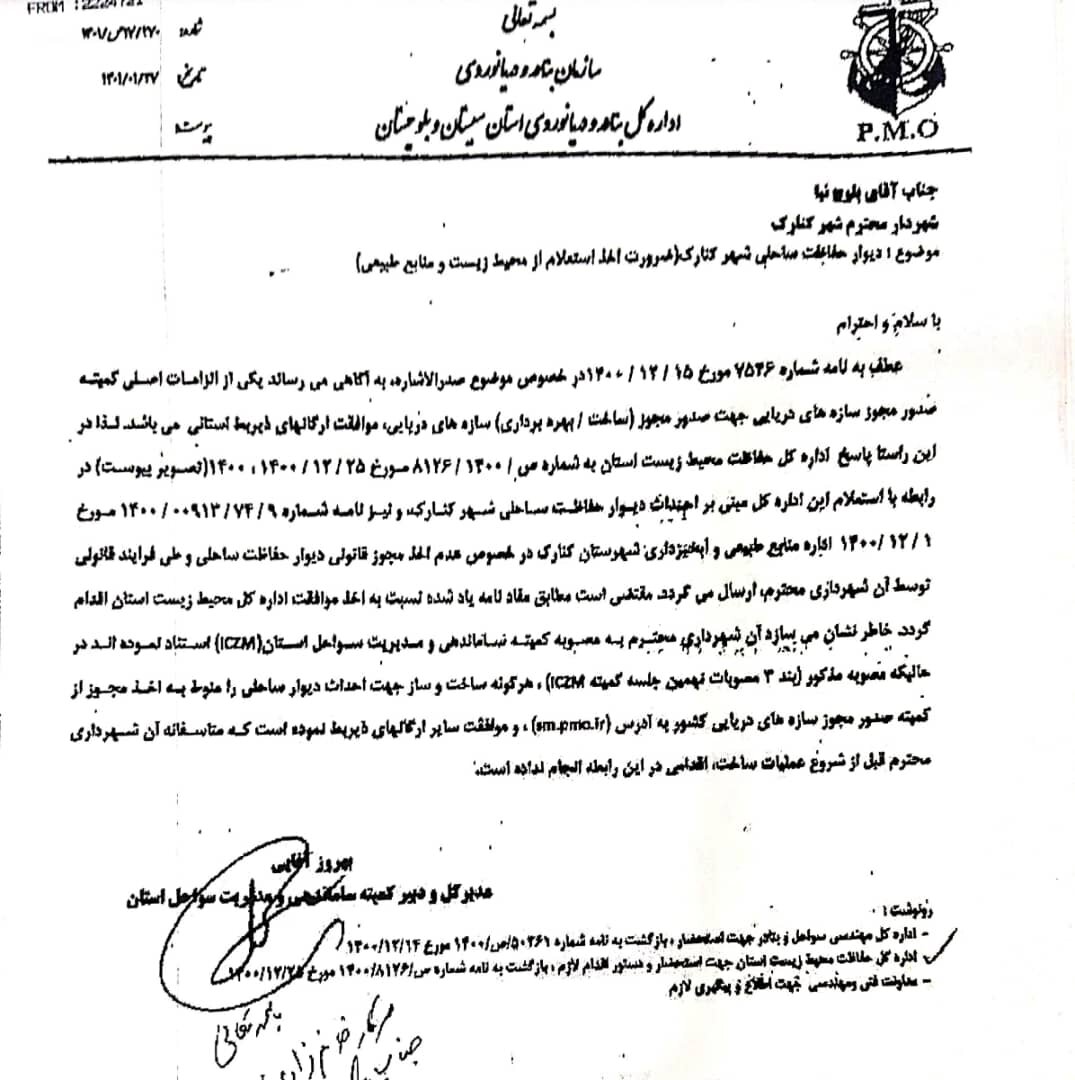 FROM :
بسمه تعالی
شماره: ۱۷/۲۷۰/ص/۱۴۰۱
سازمان بنادر و دریانوردی
تاریخ: ۱۴۰۱/۰۱/۲۷
اداره کل بنادر و دریانوردی استان سیستان و بلوچستان
پیوست:
P.M.O
جناب آقای بلوچ نیا
شهردار محترم شهر کنارک
موضوع : دیوار حفاظت ساحلی شهر کنارک(ضرورت اخذ استعلام از محیط زیست و منابع طبیعی)
با سلام و احترام
عطف به نامه شماره ۷۵۳۶ مورخ ۱۵ / ۱۲ / ۱۴۰۰در خصوص موضوع صدرالاشاره، به آگاهی می رساند یکی از الزامات اصلی کمیته
صدور مجوز سازه های دریایی جهت صدور مجوز (ساخت / بهره برداری) سازه های دریایی، موافقت ارگانهای ذیربط استانی می باشد. لذا در
این راستا پاسخ اداره کل حفاظت محیط زیست استان به شماره ص / ۱۴۰۰ / ۸۱۲۶ مورخ ۲۵ / ۱۲ / ۱۴۰۰ (تصویر پیوست) در
رابطه با استعلام این اداره کل مبنی بر احداث دیوار حفاظت ساحلی شهر کنارک، و نیز نامه شماره ۹ / ۷۴ / ۰۰۹۱۳ / ۱۴۰۰ مورخ
۱ / ۱۲ / ۱۴۰۰ اداره منابع طبیعی و آبخیزداری شهرستان کنارک در خصوص عدم اخذ مجوز قانونی دیوار حفاظت ساحلی و طی فرایند قانونی
توسط آن شهرداری محترم، ارسال می گردد. مقتضی است مطابق مفاد نامه یاد شده نسبت به اخذ موافقت اداره کل محیط زیست استان اقدام
گردد. خاطر نشان می سازد آن شهرداری محترم به مصوبه کمیته ساماندهی و مدیریت سواحل استان(ICZM) استناد نموده اند در
حالیکه مصوبه مذکور (بند ۳ مصوبات نهمین جلسه کمیته ICZM) ، هرگونه ساخت و ساز جهت احداث دیوار ساحلی را منوط به اخذ مجوز از
کمیته صدور مجوز سازه های دریایی کشور به آدرس (sm.pmo.ir) ، و موافقت سایر ارگانهای ذیربط نموده است که متاسفانه آن شهرداری
محترم قبل از شروع عملیات ساخت، اقدامی در این رابطه انجام نداده است.
بهروز آقایی
مدیرکل و دبیر کمیته ساماندهی و مدیریت سواحل استان
رونوشت :
- اداره کل مهندسی سواحل و بنادر جهت استحضار ، بازگشت به نامه شماره ۵۰۲۶۱/ص/۱۴۰۰ مورخ ۱۴۰۰/۱۲/۱۴
- اداره کل حفاظت محیط زیست استان جهت استحضار و دستور اقدام لازم ، بازگشت به نامه شماره ص/۱۴۰۰/۸۱۲۶ مورخ ۱۴۰۰/۱۲/۲۵
- معاونت فنی ومهندسی جهت اطلاع و پیگیری لازم
باسمه تعالی
سرکار خانم
جناب